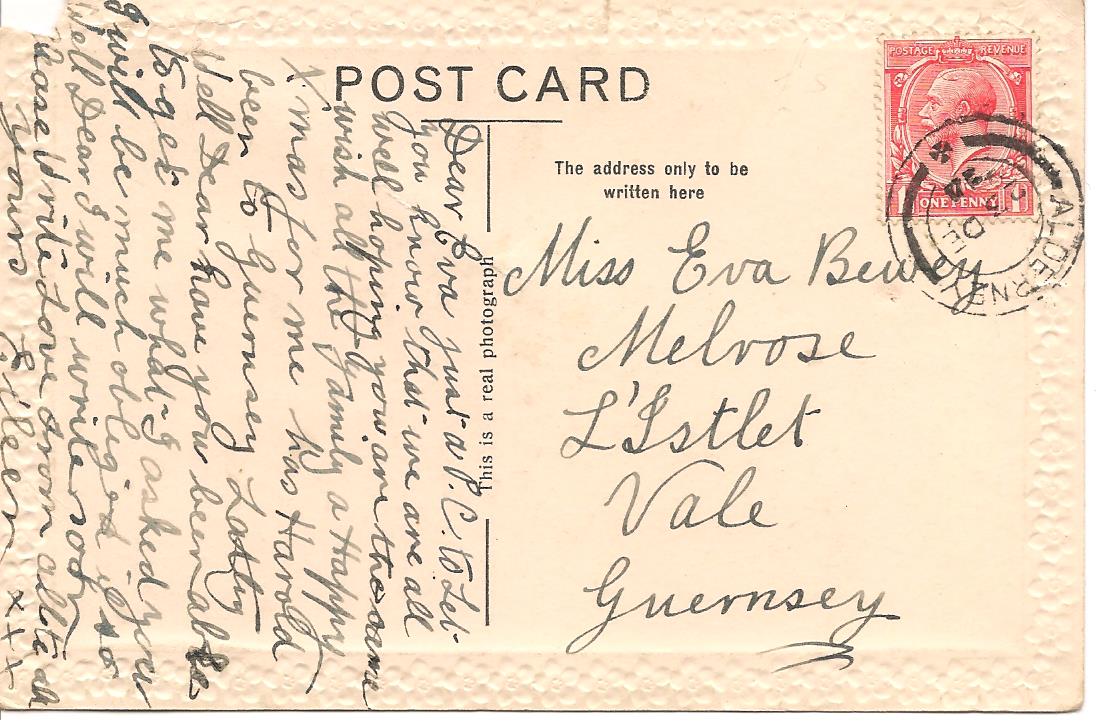 POST CARD
The address only to be
written here
This is a real photograph
POSTAGE REVENUE
ONE PENNY
ALDERNEY
DE
Miss Eva Bewey
Melrose
L'Istlet
Vale
Guernsey
Dear Eva just a P.C. to let
you know that we are all
well hoping you are the same
wish all the Family a Happy
X.mas for me has Harold
been to Guernsey Lately
Well Dear have you been able
to get me what I asked you
I will be much oblig'd if so
Well Dear I will write soon
Please Write Love from all to all
Yours Eileen xxx